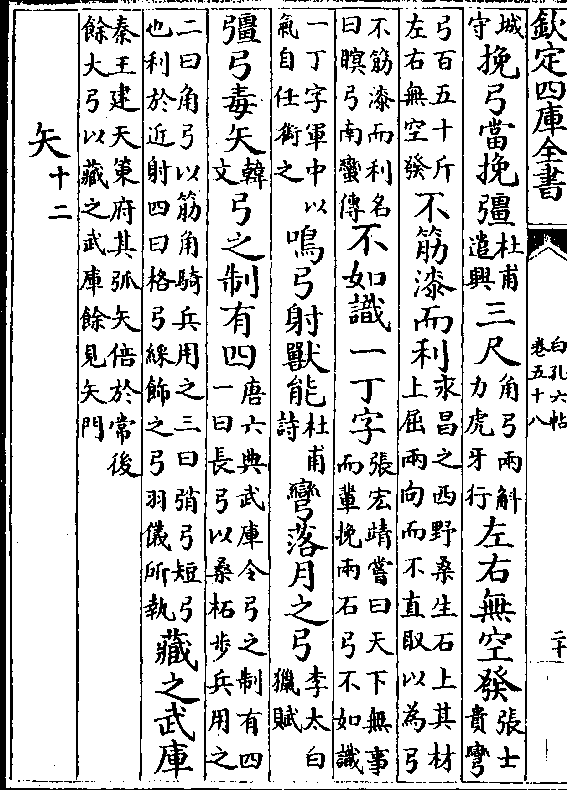 欽定四庫全書 白孔六帖 卷五十八 二十
城守挽弓當挽彊杜甫遣興三尺角弓兩斛力虎牙行左右無空發張士貴彎
弓百五十斤左右無空發不筋漆而利永昌之西野桑生石上其材上屈兩向而不直取以為弓
不筋漆而利名曰瞑弓南蠻傳不如識一丁字張宏靖嘗曰天下無事而輩挽兩石弓不如識
一丁字軍中以氣自任銜之鳴弓射獸能杜甫詩彎落月之弓李太白獵賦
彊弓毒矢韓文弓之制有四唐六典武庫令弓之制有四一曰長弓以桑柘步兵用之
二曰角弓以筋角騎兵用之三曰弰弓短弓也利於近射四曰格弓綵飾之弓羽儀所執藏之武庫
秦王建天策府其弧矢倍於常後餘大弓以藏之武庫餘見矢門
矢十二